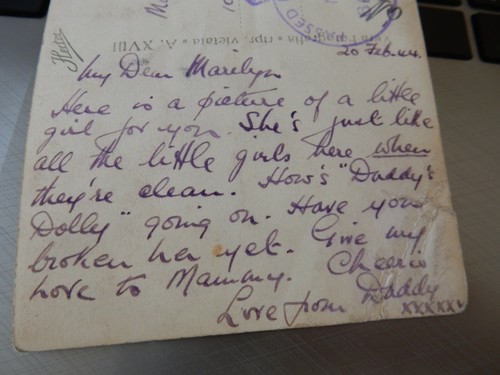 PASSED
Fotografia - ripr. vietata - A. XVIII
20 Feb. 44.
My Dear Marilyn
Here is a picture of a little
girl for you. She's just like
all the little girls here when
they're clean. How's "Daddy's
Dolly" going on. Have you
broken her yet. Give my
love to Mammy. Cheerio
Love from Daddy
xxxxxx